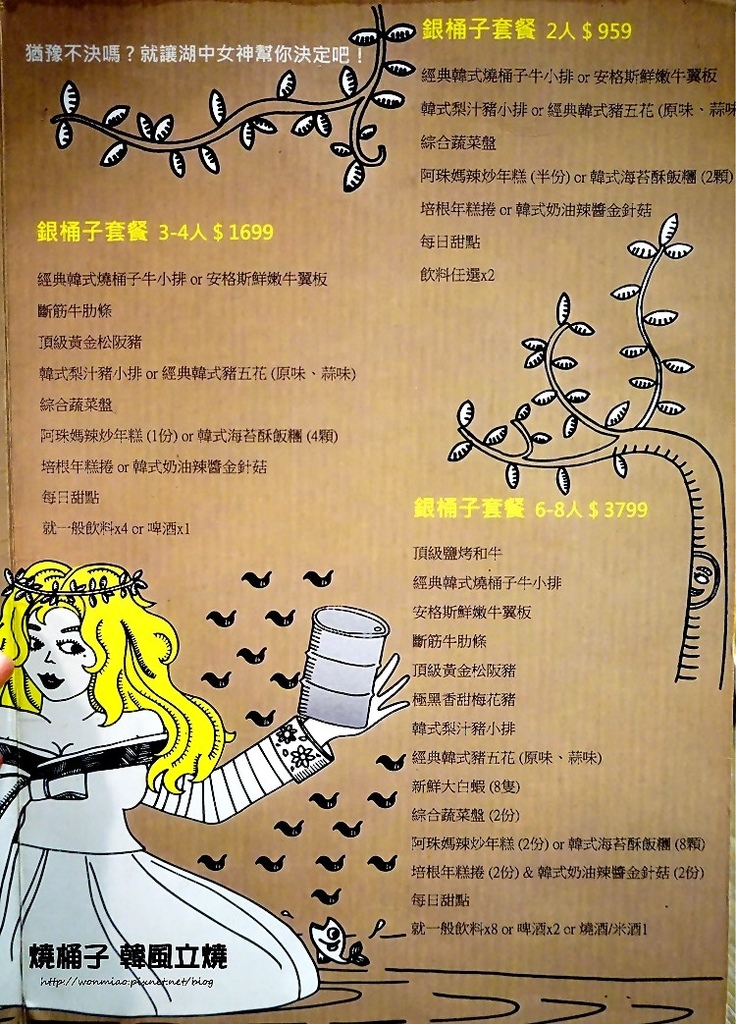 猶豫不決嗎？就讓湖中女神幫你決定吧！
銀桶子套餐 2人＄959
經典韓式燒桶子牛小排 or 安格斯鮮嫩牛翼板
韓式梨汁豬小排 or 經典韓式豬五花 (原味、蒜味
綜合蔬菜盤
阿珠媽辣炒年糕 (半份) or 韓式海苔酥飯糰 (2顆)
培根年糕捲 or 韓式奶油辣醬金針菇
每日甜點
飲料任選x2
銀桶子套餐 3-4人＄1699
經典韓式燒桶子牛小排 or 安格斯鮮嫩牛翼板
斷筋牛肋條
頂級黃金松阪豬
韓式梨汁豬小排 or 經典韓式豬五花 (原味、蒜味)
綜合蔬菜盤
阿珠媽辣炒年糕 (1份) or 韓式海苔酥飯糰 (4顆)
培根年糕捲 or 韓式奶油辣醬金針菇
每日甜點
就一般飲料x4 or 啤酒x1
銀桶子套餐 6-8人＄3799
頂級鹽烤和牛
經典韓式燒桶子牛小排
安格斯鮮嫩牛翼板
斷筋牛肋條
頂級黃金松阪豬
極黑香甜梅花豬
韓式梨汁豬小排
經典韓式豬五花 (原味、蒜味)
新鮮大白蝦 (8隻)
綜合蔬菜盤 (2份)
阿珠媽辣炒年糕 (2份) or 韓式海苔酥飯糰 (8顆)
培根年糕捲 (2份) & 韓式奶油辣醬金針菇 (2份)
每日甜點
就一般飲料x8 or 啤酒x2 or 燒酒/米酒1
燒桶子 韓風立燒
http://wonmiao.pixnet.net/blog